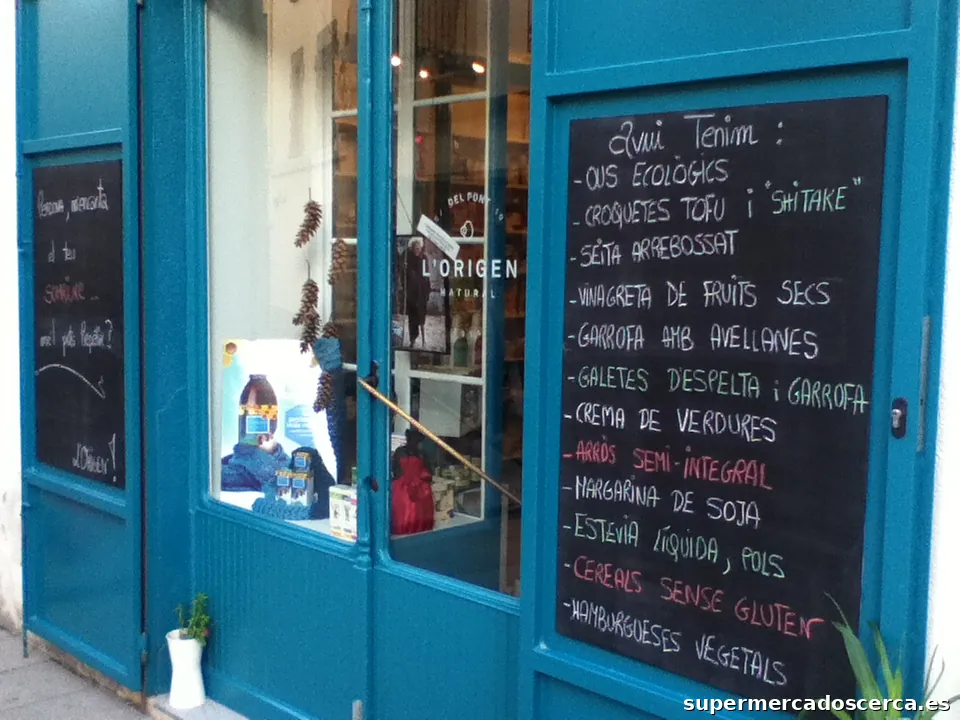 Perdona, m'encanta
el teu
SOMRIURE...
me'l pots Repetir?
L'ORIGEN
DEL PONT
L'ORIGEN
NATURAL
Avui Tenim :
- OUS ECOLÒGICS
- CROQUETES TOFU i "SHITAKE"
- SEITA ARREBOSSAT
- VINAGRETA DE FRUITS SECS
- GARROFA AMB AVELLANES
- GALETES D'ESPELTA i GARROFA
- CREMA DE VERDURES
- ARRÒS SEMI-INTEGRAL
- MARGARINA DE SOJA
- ESTEVIA LÍQUIDA, POLS
- CEREALS SENSE GLUTEN
- HAMBURGUESES VEGETALS
supermercadoscerca.es